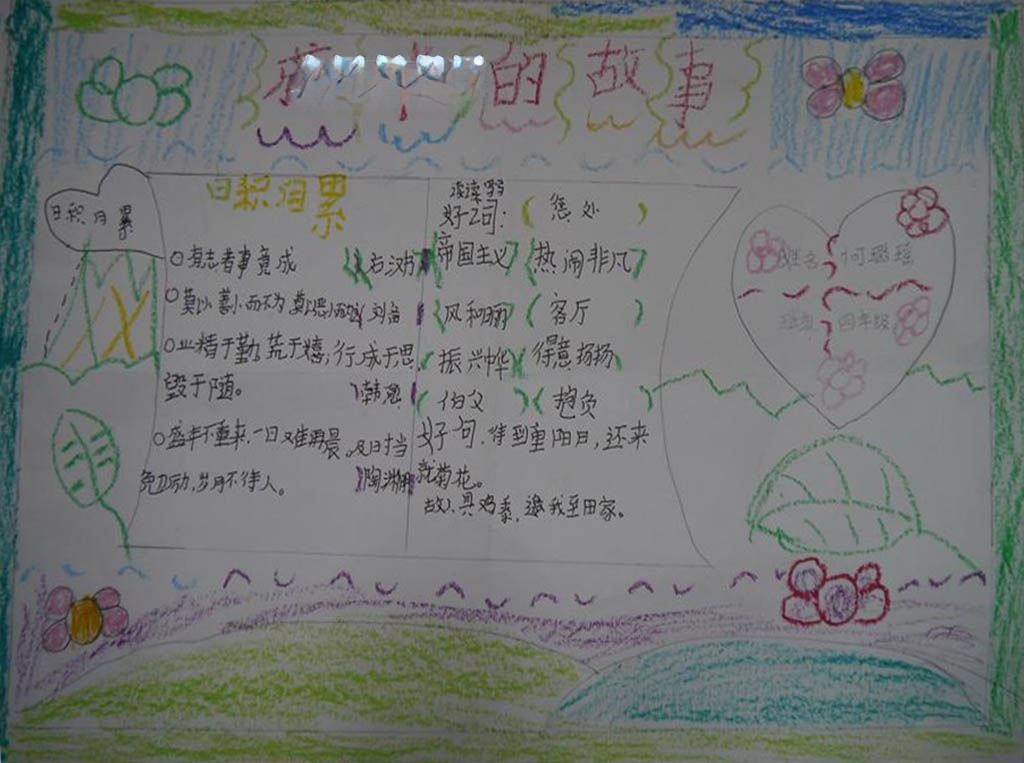 的故事
日积月累
日积月累
有志者事竟成 后汉书
莫以善小而不为 莫以恶小而为 刘备
业精于勤,荒于嬉;行成于思
毁于随。 韩愈
盛年不重来,一日难再晨。及日当
勉励,岁月不待人。 陶渊明
读读写写
好词: 惩处
帝国主义 热闹非凡
风和日丽 客厅
振兴中华 得意扬扬
伯父 抱负
好句:待到重阳日,还来
就菊花。
故人具鸡黍,邀我至田家。
姓名 何璐瑶
班级 四年级